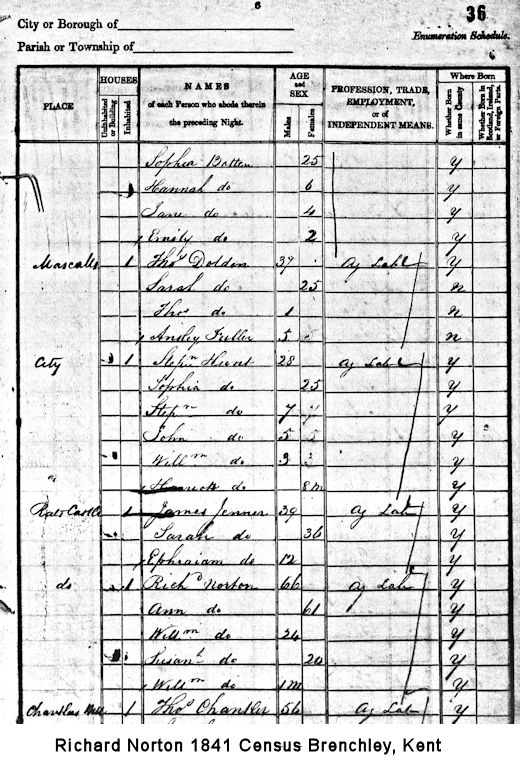 6
36
City or Borough of
Enumeration Schedule.
Parish or Township of
PLACE
HOUSES
Uninhabited or Building
Inhabited
NAMES of each Person who abode therein the preceding Night.
AGE and SEX
Males
Females
PROFESSION, TRADE, EMPLOYMENT, or of INDEPENDENT MEANS.
Where Born
Whether Born in same County
Whether Born in Scotland, Ireland, or Foreign Parts.
Sophia Batten 25 y
Hannah do 6 y
Jane do 4 y
Emily do 2 y
Mascalls 1 Thos Doldon 37 Ag Lab y
Sarah do 25 n
Thos do 1 n
Ansley Fuller 5 n
City 1 Stepn Hunt 28 Ag Lab y
Sophia do 25 y
Stepn do 7 y
John do 5 y
Willm do 3 y
do 8m y
1 James Jenner 39 Ag Lab y
Sarah do 36 y
Ephraiam do 12 y
do 1 Richd Norton 66 Ag Lab y
Ann do 61 y
Willm do 24 y
Susant do 20 y
Willm do 1m y
1 Thos Chantler 56 Ag Lab y
Richard Norton 1841 Census Brenchley, Kent